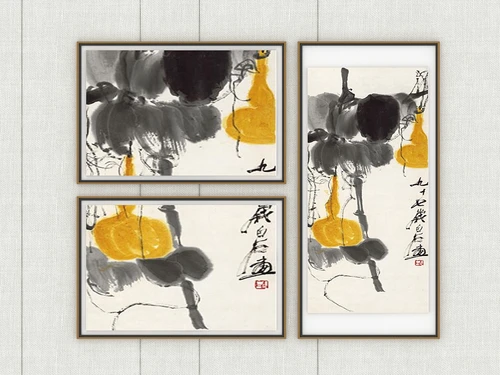 九
歲白石畫
九十七歲白石畫